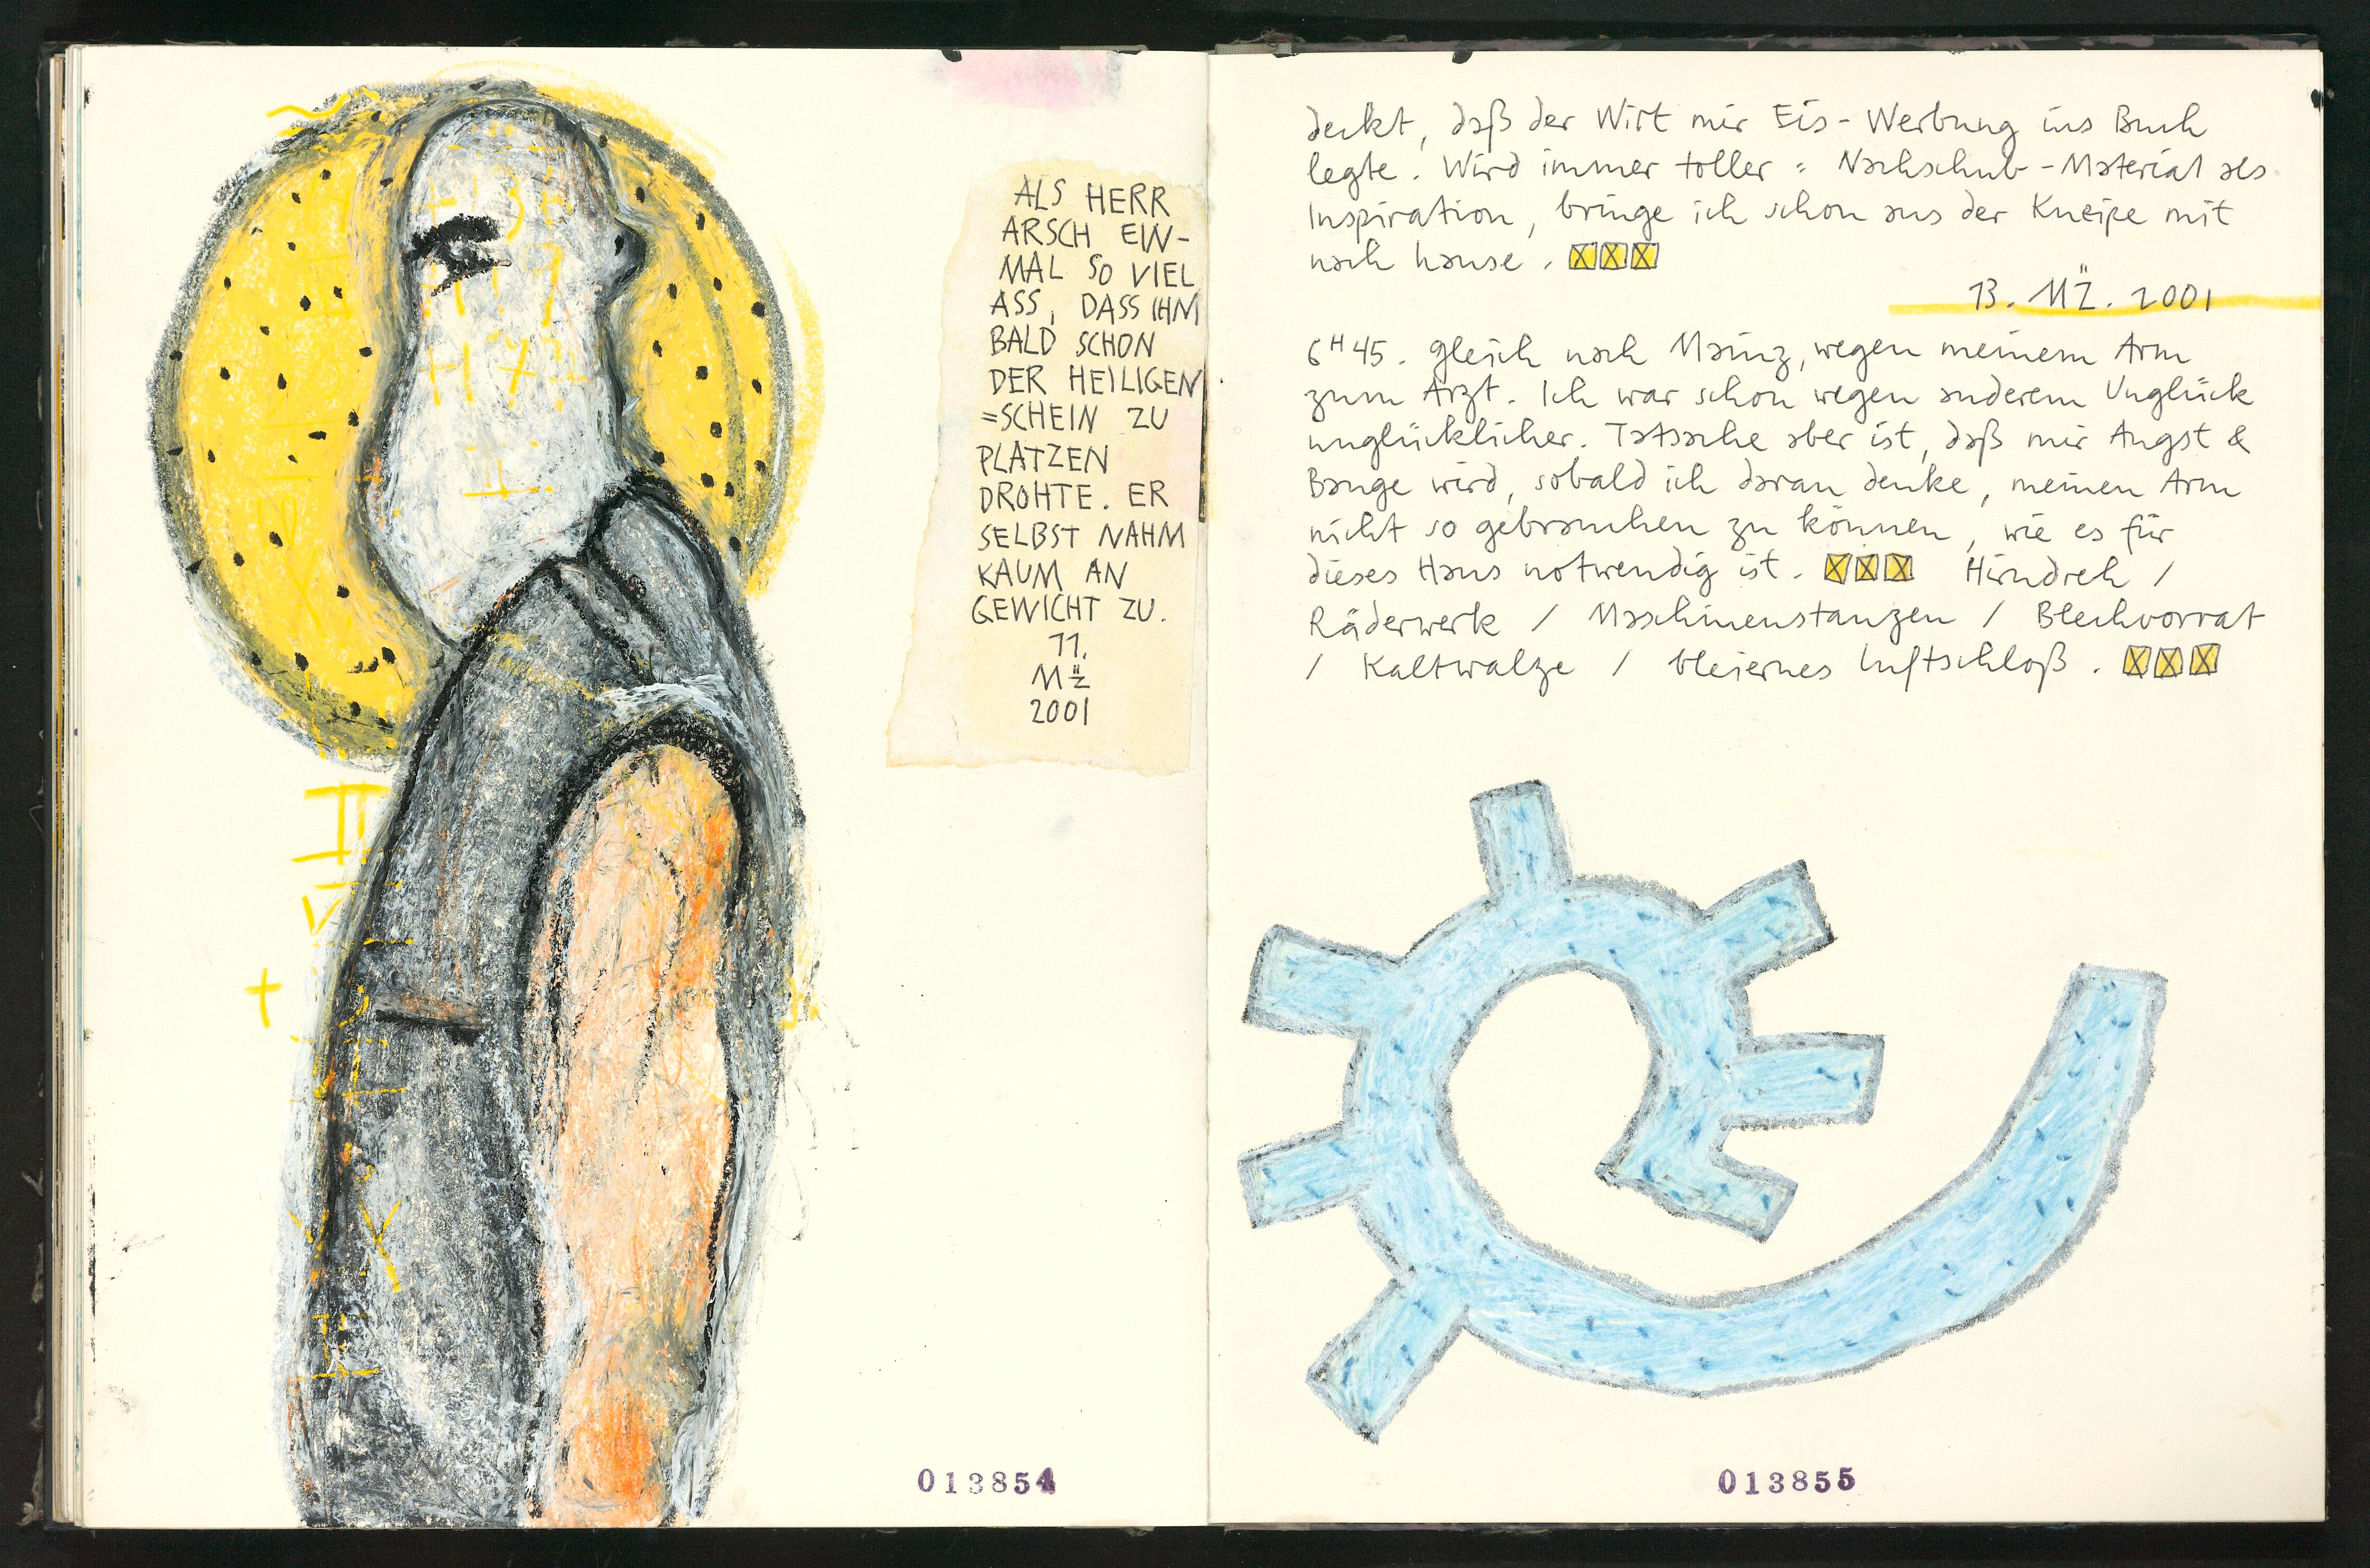 ALS HERR
ARSCH EIN-
MAL SO VIEL
ASS, DASS IHM
BALD SCHON
DER HEILIGEN
=SCHEIN ZU
PLATZEN
DROHTE. ER
SELBST NAHM
KAUM AN
GEWICHT ZU.
11.
MÄZ
2001
013854
deckt, daß der Wirt mir Eis-Werbung ins Buch
legte. Wird immer toller: Nachschub-Material als
Inspiration, bringe ich schon aus der Kneipe mit
nach hause.
13. MÄZ. 2001
6H45. gleich nach Mainz, wegen meinem Arm
zum Arzt. Ich war schon wegen anderem Unglück
unglücklicher. Tatsache aber ist, daß mir Angst &
Bange wird, sobald ich daran denke, meinen Arm
nicht so gebrauchen zu können, wie es für
dieses Haus notwendig ist. Hirndreh /
Räderwerk / Maschinenstanzen / Blechvorrat
/ Kaltwalze / bleiernes Luftschloß.
013855